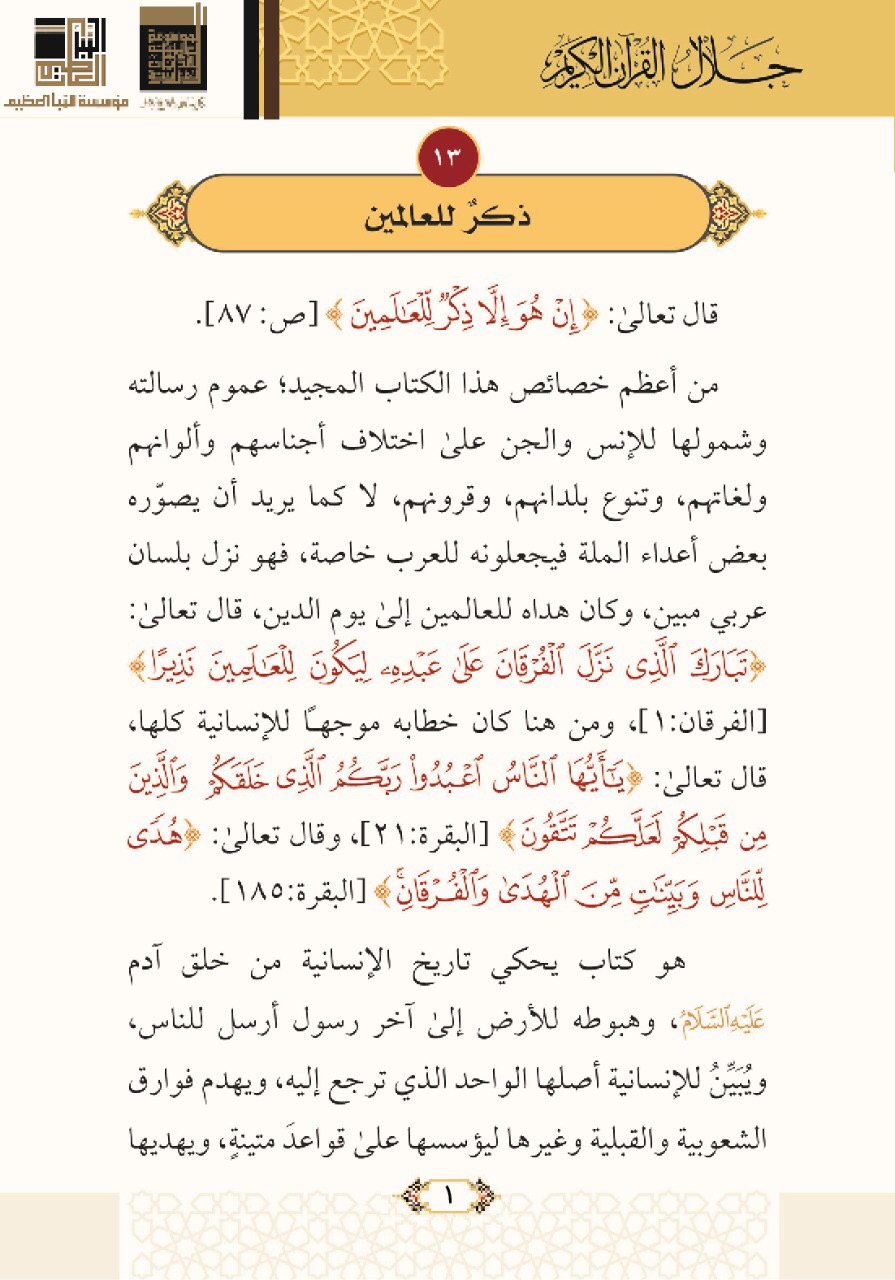 جلال القرآن الكريم
النبأ العظيم
مؤسسة النبأ العظيم
١٣
ذكرٌ للعالمين
قال تعالىٰ: ﴿إِنۡ هُوَ إِلَّا ذِكۡرٞ لِّلۡعَٰلَمِينَ﴾ [ص: ٨٧].
من أعظم خصائص هذا الكتاب المجيد؛ عموم رسالته
وشمولها للإنس والجن علىٰ اختلاف أجناسهم وألوانهم
ولغاتهم، وتنوع بلدانهم، وقرونهم، لا كما يريد أن يصوّره
بعض أعداء الملة فيجعلونه للعرب خاصة، فهو نزل بلسان
عربي مبين، وكان هداه للعالمين إلىٰ يوم الدين، قال تعالىٰ:
﴿تَبَارَكَ ٱلَّذِى نَزَّلَ ٱلۡفُرۡقَانَ عَلَىٰ عَبۡدِهِۦ لِيَكُونَ لِلۡعَٰلَمِينَ نَذِيرًا﴾
[الفرقان:١]، ومن هنا كان خطابه موجهـًا للإنسانية كلها،
قال تعالىٰ: ﴿يَٰٓأَيُّهَا ٱلنَّاسُ ٱعۡبُدُواْ رَبَّكُمُ ٱلَّذِى خَلَقَكُمۡ وَٱلَّذِينَ
مِن قَبۡلِكُمۡ لَعَلَّكُمۡ تَتَّقُونَ﴾ [البقرة:٢١]، وقال تعالىٰ: ﴿هُدٗى
لِّلنَّاسِ وَبَيِّنَٰتٖ مِّنَ ٱلۡهُدَىٰ وَٱلۡفُرۡقَانِۚ﴾ [البقرة:١٨٥].
هو كتاب يحكي تاريخ الإنسانية من خلق آدم
عَلَيْهِ ٱلسَّلَامُ، وهبوطه للأرض إلىٰ آخر رسول أرسل للناس،
ويُبَيِّنُ للإنسانية أصلها الواحد الذي ترجع إليه، ويهدم فوارق
الشعوبية والقبلية وغيرها ليؤسسها علىٰ قواعدَ متينةٍ، ويهديها
١